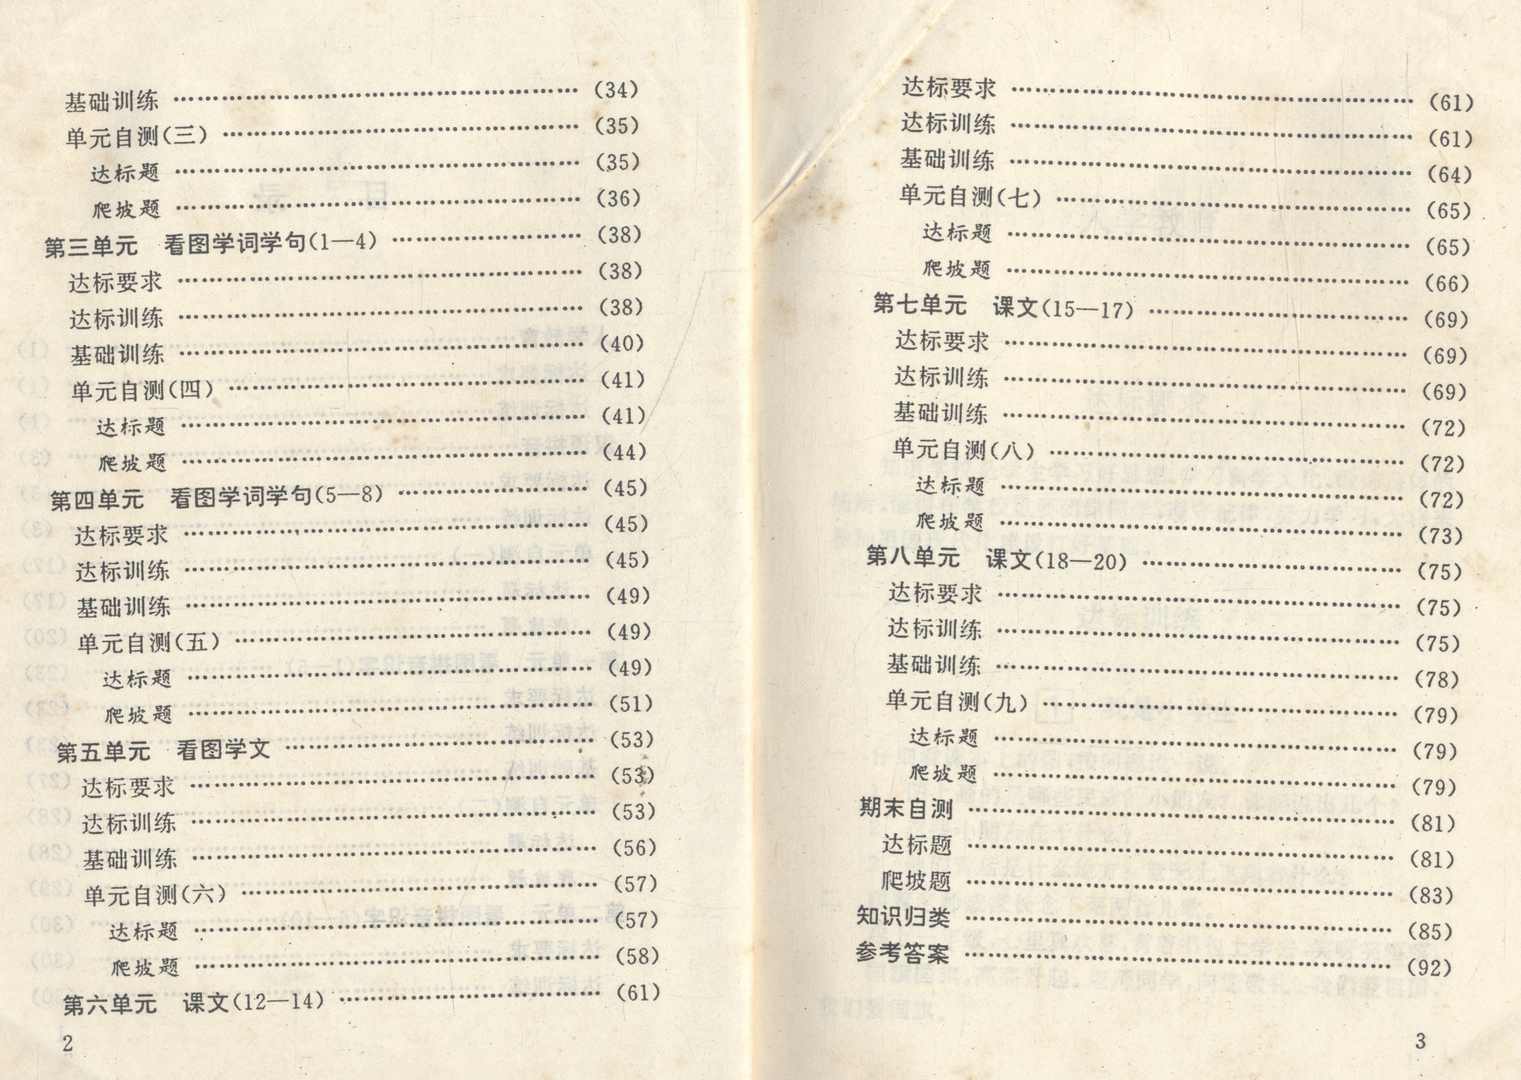 基础训练 ……………………………………………… (34)
单元自测(三) ……………………………………… (35)
达标题 ……………………………………………… (35)
爬坡题 ……………………………………………… (36)
第三单元 看图学词学句(1—4) …………………… (38)
达标要求 ……………………………………………… (38)
达标训练 ……………………………………………… (38)
基础训练 ……………………………………………… (40)
单元自测(四) ……………………………………… (41)
达标题 ……………………………………………… (41)
爬坡题 ……………………………………………… (44)
第四单元 看图学词学句(5—8) …………………… (45)
达标要求 ……………………………………………… (45)
达标训练 ……………………………………………… (45)
基础训练 ……………………………………………… (49)
单元自测(五) ……………………………………… (49)
达标题 ……………………………………………… (49)
爬坡题 ……………………………………………… (51)
第五单元 看图学文 ………………………………… (53)
达标要求 ……………………………………………… (53)
达标训练 ……………………………………………… (53)
基础训练 ……………………………………………… (56)
单元自测(六) ……………………………………… (57)
达标题 ……………………………………………… (57)
爬坡题 ……………………………………………… (58)
第六单元 课文(12—14) …………………………… (61)
2
达标要求 ……………………………………………… (61)
达标训练 ……………………………………………… (61)
基础训练 ……………………………………………… (64)
单元自测(七) ……………………………………… (65)
达标题 ……………………………………………… (65)
爬坡题 ……………………………………………… (66)
第七单元 课文(15—17) …………………………… (69)
达标要求 ……………………………………………… (69)
达标训练 ……………………………………………… (69)
基础训练 ……………………………………………… (72)
单元自测(八) ……………………………………… (72)
达标题 ……………………………………………… (72)
爬坡题 ……………………………………………… (73)
第八单元 课文(18—20) …………………………… (75)
达标要求 ……………………………………………… (75)
达标训练 ……………………………………………… (75)
基础训练 ……………………………………………… (78)
单元自测(九) ……………………………………… (79)
达标题 ……………………………………………… (79)
爬坡题 ……………………………………………… (79)
期末自测 ……………………………………………… (81)
达标题 ……………………………………………… (81)
爬坡题 ……………………………………………… (83)
知识归类 ……………………………………………… (85)
参考答案 ……………………………………………… (92)
3